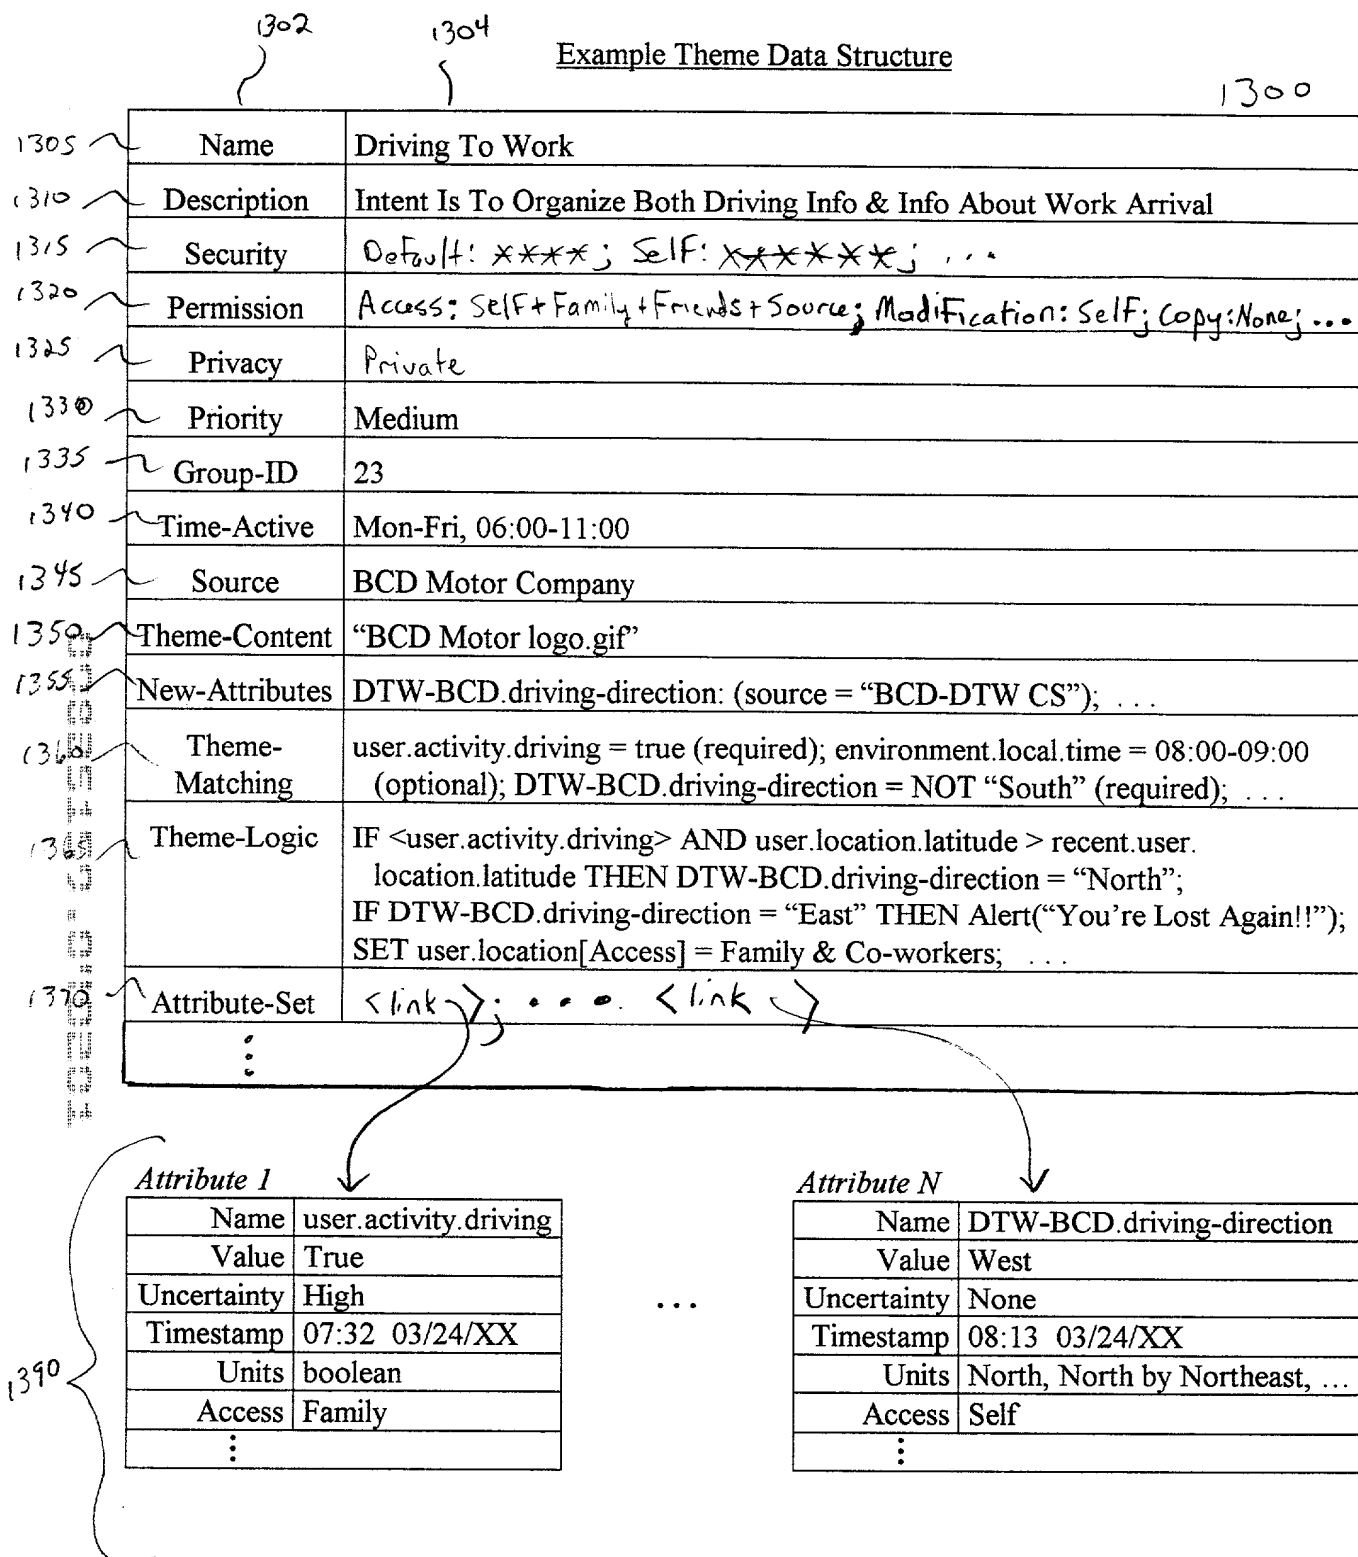 1302 1304
Example Theme Data Structure
1300
1305 Name Driving To Work
1310 Description Intent Is To Organize Both Driving Info & Info About Work Arrival
1315 Security Default: ****; Self: ******; ...
1320 Permission Access: Self+Family+Friends+Source; Modification: Self; Copy:None; ...
1325 Privacy Private
1330 Priority Medium
1335 Group-ID 23
1340 Time-Active Mon-Fri, 06:00-11:00
1345 Source BCD Motor Company
1350 Theme-Content “BCD Motor logo.gif”
1355 New-Attributes DTW-BCD.driving-direction: (source = “BCD-DTW CS”); ...
1360 Theme- user.activity.driving = true (required); environment.local.time = 08:00-09:00
Matching (optional); DTW-BCD.driving-direction = NOT “South” (required); ...
1365 Theme-Logic IF <user.activity.driving> AND user.location.latitude > recent.user.
location.latitude THEN DTW-BCD.driving-direction = “North”;
IF DTW-BCD.driving-direction = “East” THEN Alert(“You're Lost Again!!”);
SET user.location[Access] = Family & Co-workers; ...
1370 Attribute-Set <link>; .... <link>
⋮
Attribute 1
Name user.activity.driving
Value True
Uncertainty High
Timestamp 07:32 03/24/XX
Units boolean
Access Family
⋮
...
Attribute N
Name DTW-BCD.driving-direction
Value West
Uncertainty None
Timestamp 08:13 03/24/XX
Units North, North by Northeast, ...
Access Self
⋮
1390